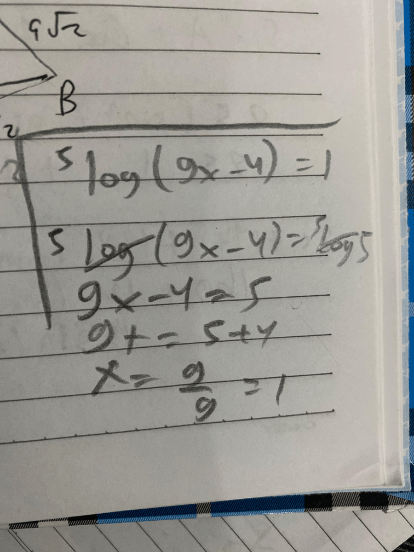 9√2
B
⁵log(9x-4)=1
⁵log(9x-4)=⁵log5
9x-4=5
9x=5+4
x=9/9=1